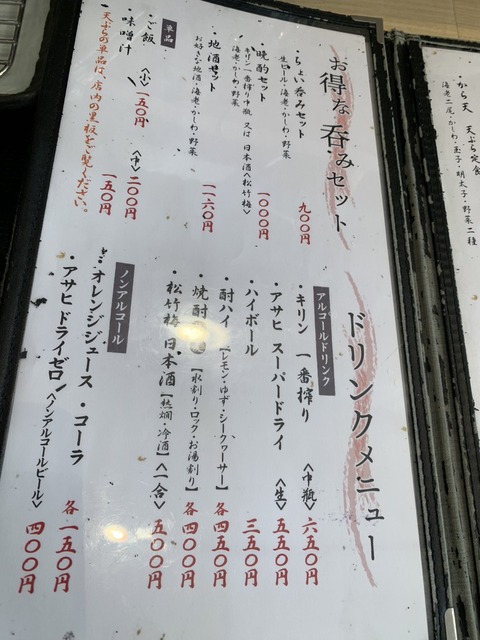 お得な呑みセット
・ちょい呑みセット 九〇〇円
生ビール・海老・かしわ・野菜
・晩酌セット 一〇〇〇円
キリン一番搾り中瓶 又は 日本酒〈松竹梅〉
海老・かしわ・野菜
・地酒セット 一一六〇円
お好きな地酒・海老・かしわ・野菜
単品
・ご飯 〈小〉一五〇円 〈中〉二〇〇円
・味噌汁 一五〇円
天ぷらの単品は、店内の黒板をご覧ください。
ドリンクメニュー
アルコールドリンク
・キリン 一番搾り 〈中瓶〉 六五〇円
・アサヒ スーパードライ 〈生〉 五五〇円
・ハイボール 三五〇円
・酎ハイ【レモン・ゆず・シークヮーサー】 各 四五〇円
・焼酎【水割り・ロック・お湯割り】 各 四〇〇円
・松竹梅 日本酒【熱燗・冷酒】〈一合〉 五〇〇円
ノンアルコール
・オレンジジュース ・コーラ 各 一五〇円
・アサヒ ドライゼロ〈ノンアルコールビール〉 四〇〇円
から天 天ぷら定食
海老二尾・かしわ・玉子・明太子・野菜二種